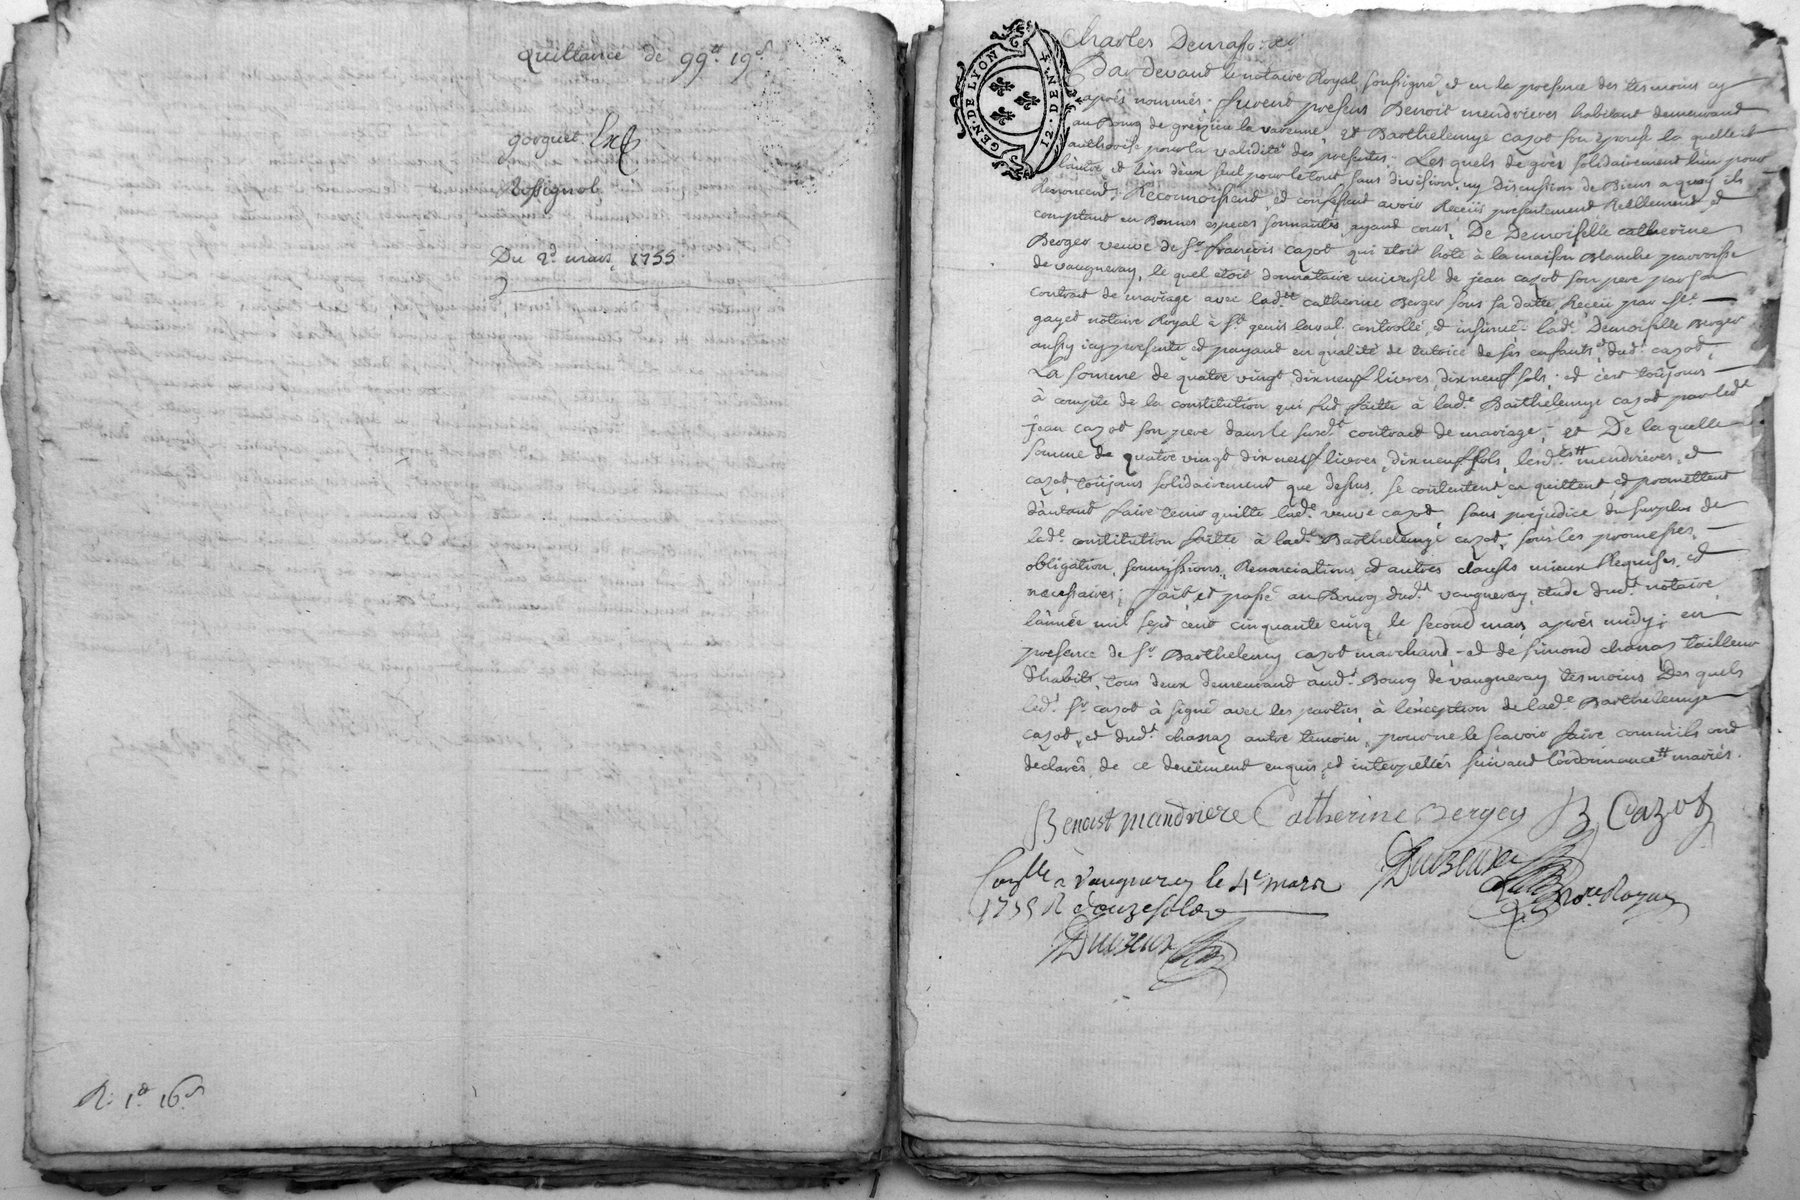 Quittance de 99ᵗᵗ 19ˢ
gorguet
Rossignol
Du 2ᵈ mars 1755
R: 1ᵗᵗ 16ˢ
GEN. DE LYON
12. DEN. 4.
Charles
Pardevant le notaire Royal soussigné, et en la presence des tesmoins cy
aprés nommés; furent presens Benoit mendrieres habitant demeurant
au Bourg de grezieu la varenne, et Barthelemye cazot son epouse la quelle il
authorise pour la validité des presentes. Les quels de grés solidairement l'un pour
l'autre et l'un d'eux seul pour le tout sans division, ny discussion de Biens a quoy ils
Renoncent; Reconnoissent, et confessent avoir Receüs presentement Réellement, et
comptant en Bonnes especes sonnantes, ayant cours, De Demoiselle catherine
Berger veuve de Sʳ françois cazot qui étoit hote à la maison Blanche parroisse
de vaugneray, le quel etoit donnataire universel de jean cazot son pere par son
contract de mariage avec ladᵗᵉ catherine Berger sous sa datte, Receu par Mᵉ
gayet notaire Royal à Sᵗ genis laval controllé, et insinué. ladᵉ Demoiselle Berger
aussy icy presente et payant en qualité de tutrice de ses enfants, et dudᵗ cazot,
La somme de quatre vingt dix neuf livres, dix neuf sols; et c'est toujours
à compte de la constitution qui fut faitte à ladᵉ Barthelemye cazot par ledᵗ
jean cazot son pere dans le susdᵗ contract de mariage; et De laquelle
somme de quatre vingt dix neuf livres, dix neuf sols, lesdᵗˢ # mendrieres, et
cazot, toujours solidairement que dessus, se contentent, en quittent, et promettent
d'autant faire tenir quitte ladᵉ veuve cazot, sans prejudice du surplus de
ladᵉ constitution faitte à ladᵉ Barthelemye cazot, sous les promesses,
obligation, soumissions, Renonciations, et autres clauses mieux Requises, et
necessaires; fait, et passé au Bourg dudᵗ vaugneray, étude dudᵗ notaire,
l'année mil sept cent cinquante cinq, le second mars, après midy; en
presence de Sʳ Barthelemy cazot marchand, et de simond charras tailleur
d'habits, tous deux demeurant audᵗ Bourg de vaugneray, tesmoins Des quels
ledᵗ Sʳ cazot à signé avec les parties, à l'exception de ladᵉ Barthelemye
cazot, et dudᵗ charras autre temoin, pour ne le scavoir faire comm'ils ont
déclarés, de ce deüement enquis, et interpellés suivant l'ordonnance # mariés.
Benoist mandriere Catherine Berger B Cazot
Duvzeux
noʳᵉ Royal
Conllé à vaugneray le 4ᵉ mars
1755 R douze sols
Duvzeux